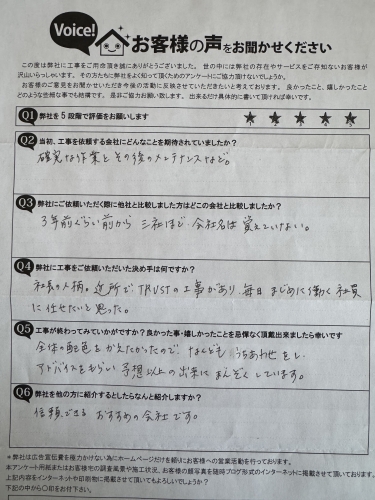 Voice!
お客様の声をお聞かせください
この度は弊社に工事をご用命頂き誠にありがとうございました。世の中には弊社の存在やサービスをご存知ないお客様が
沢山いらっしゃいます。その方たちに弊社をよく知って頂くためのアンケートにご協力頂けないでしょうか。
お客様のご意見をお聞かせいただき今後の活動に反映させていただきたいと考えております。良かったこと、嬉しかったこと
どのような些細な事でも結構です。是非ご協力お願い致します。出来るだけ具体的に書いて頂ければ幸いです。
Q1 弊社を5段階で評価をお願いします ★ ★ ★ ★ ★
Q2 当初、工事を依頼する会社にどんなことを期待されていましたか?
確実な作業とその後のメンテナンスなど。
Q3 弊社にご依頼いただく際に他社と比較しました方はどこの会社と比較しましたか?
3年前ぐらい前から 三社ほど、会社名は覚えていない。
Q4 弊社に工事をご依頼いただいた決め手は何ですか?
社長の人柄。近所でTRUSTの工事があり、毎日まじめに働く社員
に任せたいと思った。
Q5 工事が終わってみていかがですか?良かった事・嬉しかったことを忌憚なく頂戴出来ましたら幸いです
全体の配色をかえたかったので、なんども うちあわせをし、
アドバイスをもらい予想以上の出来にまんぞくしています。
Q6 弊社を他の方に紹介するとしたらなんと紹介しますか?
信頼できる おすすめの会社です。
*弊社は広告宣伝費を極力かけない為にホームページだけを頼りにお客様への営業活動を行っております。
本アンケート用紙またはお客様宅の調査風景や施工状況、お客様の顔写真を随時ブログ形式のインターネットに掲載させて頂いております。
上記内容をインターネットや印刷物に掲載させて頂いてもよろしいでしょうか?
下記の中から〇印をお付け下さい。